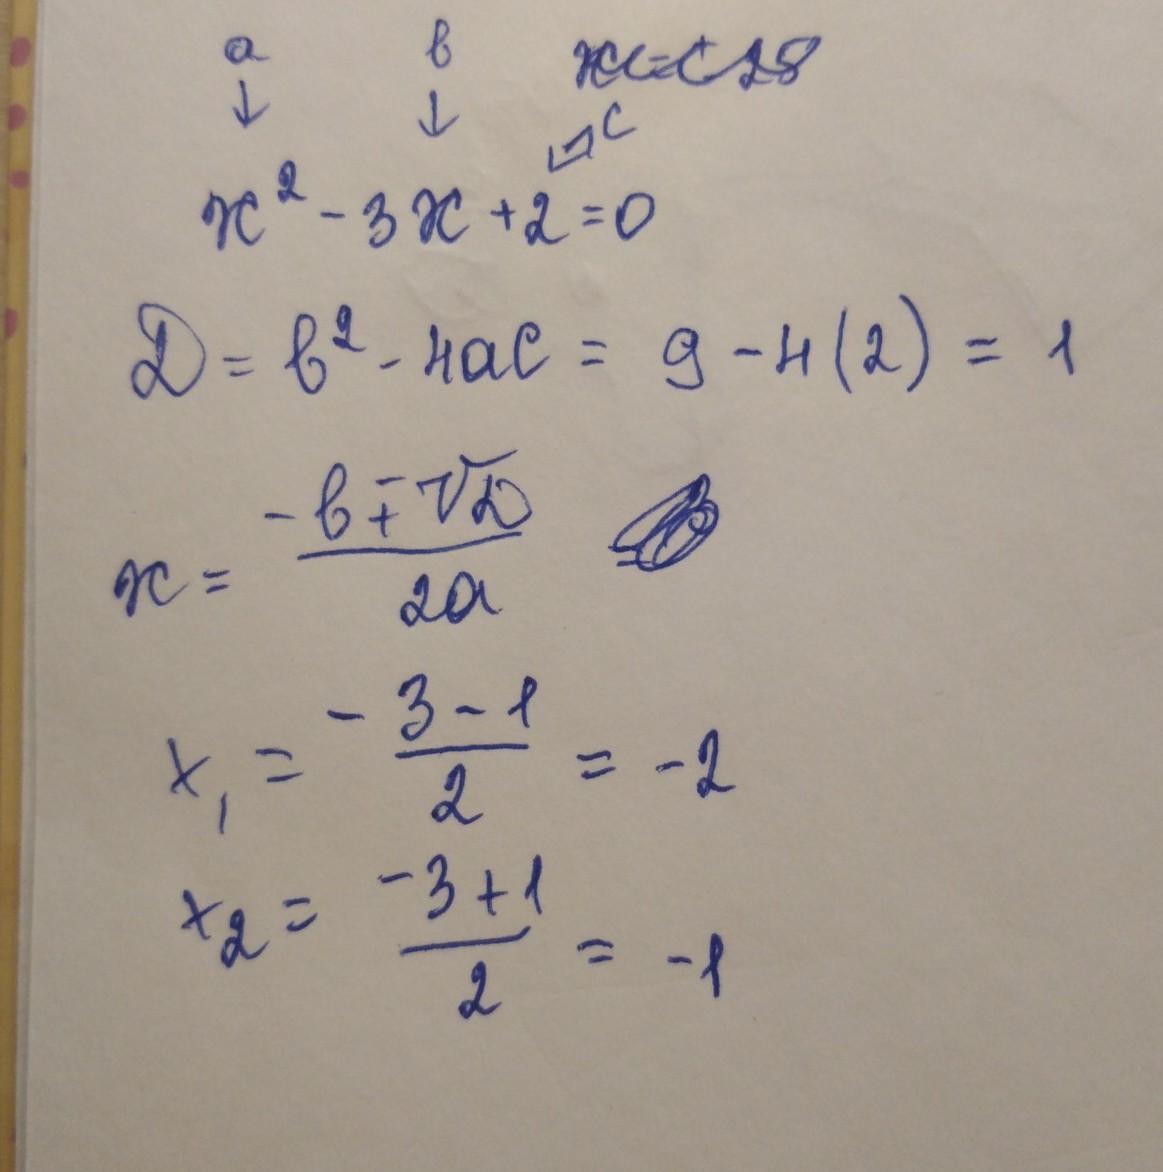 a b
↓ ↓ c
x² - 3x + 2 = 0
D = b² - 4ac = 9 - 4(2) = 1
x = (-b ∓ √D) / 2a
x₁ = (-3 - 1) / 2 = -2
x₂ = (-3 + 1) / 2 = -1